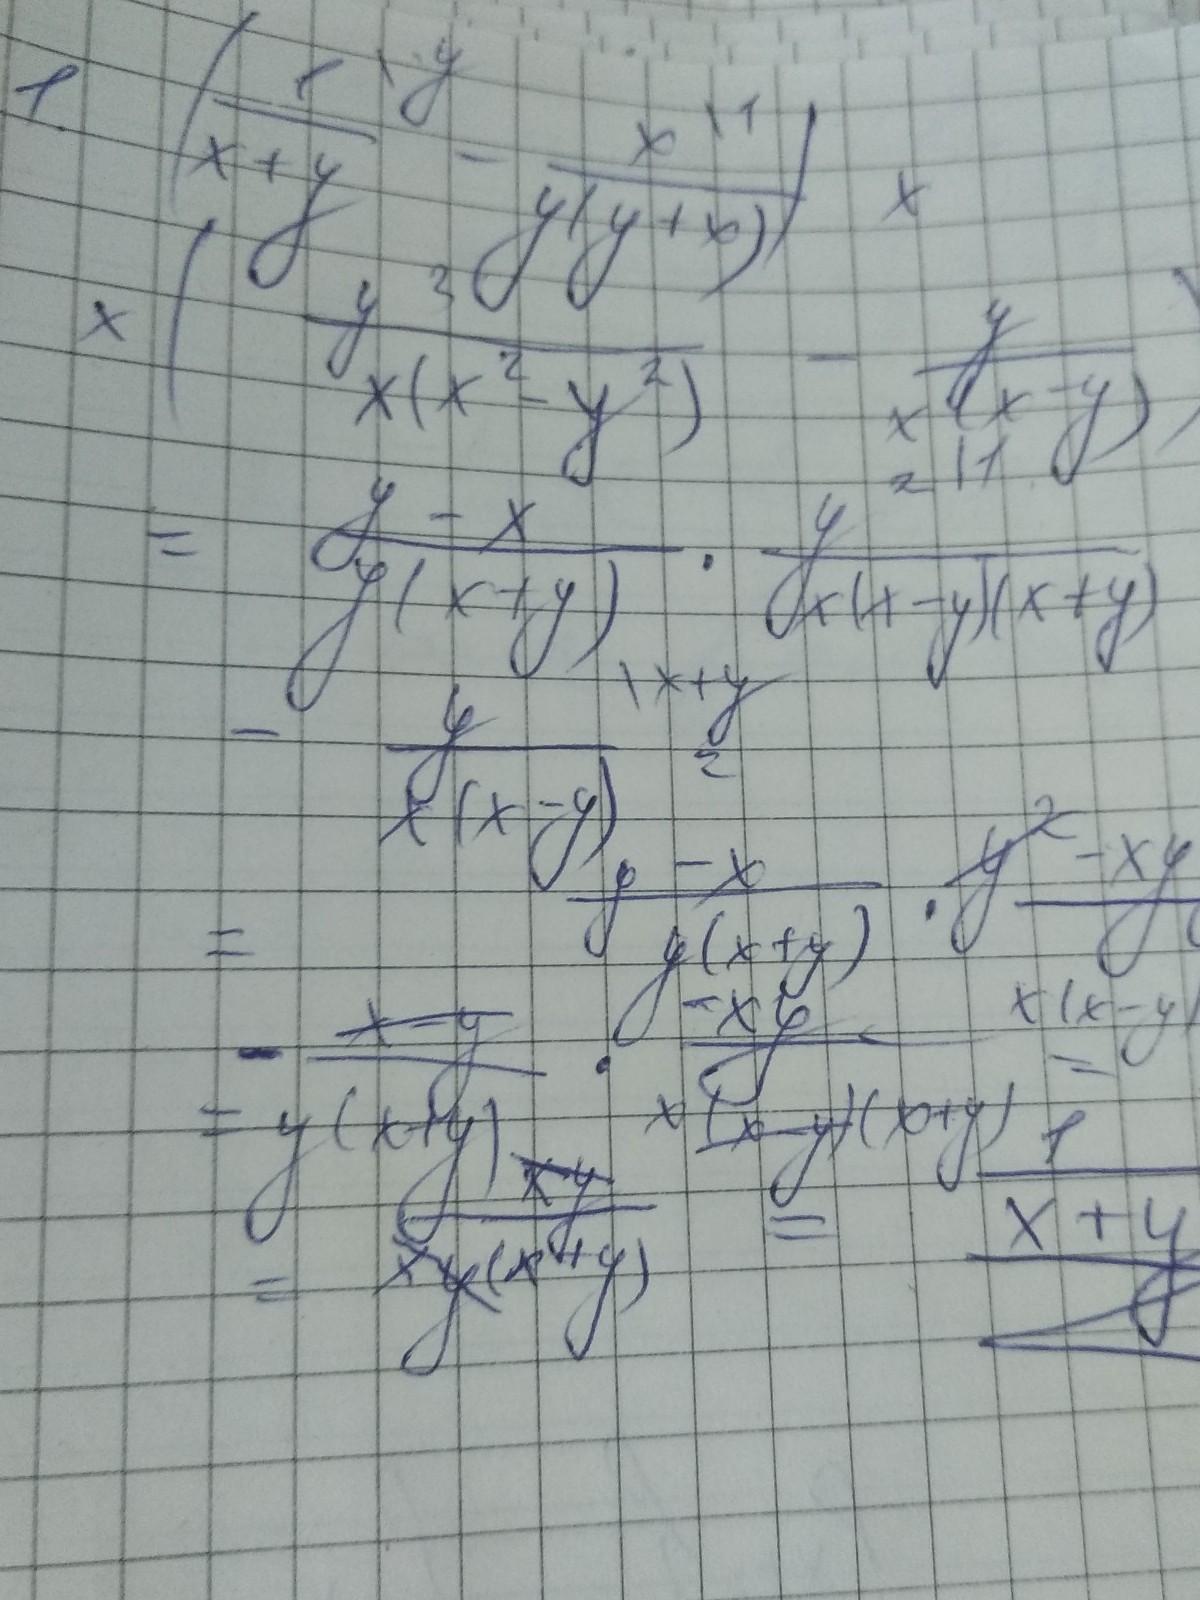 1. ( 1 \ y / x + y - x \ 1 / y(y + x) ) x
x ( y² / x(x² - y²) - y / x(x - y) )
= \1
= y - x / y(x + y) · y / x(x - y)(x + y)
- y / x(x - y) \ x + y =
= y - x / y(x + y) · y² - xy / x(x - y)
= - x - y / y(x + y) · - xy / x(x - y)(x + y) =
= xy / xy(x + y) = 1 / x + y